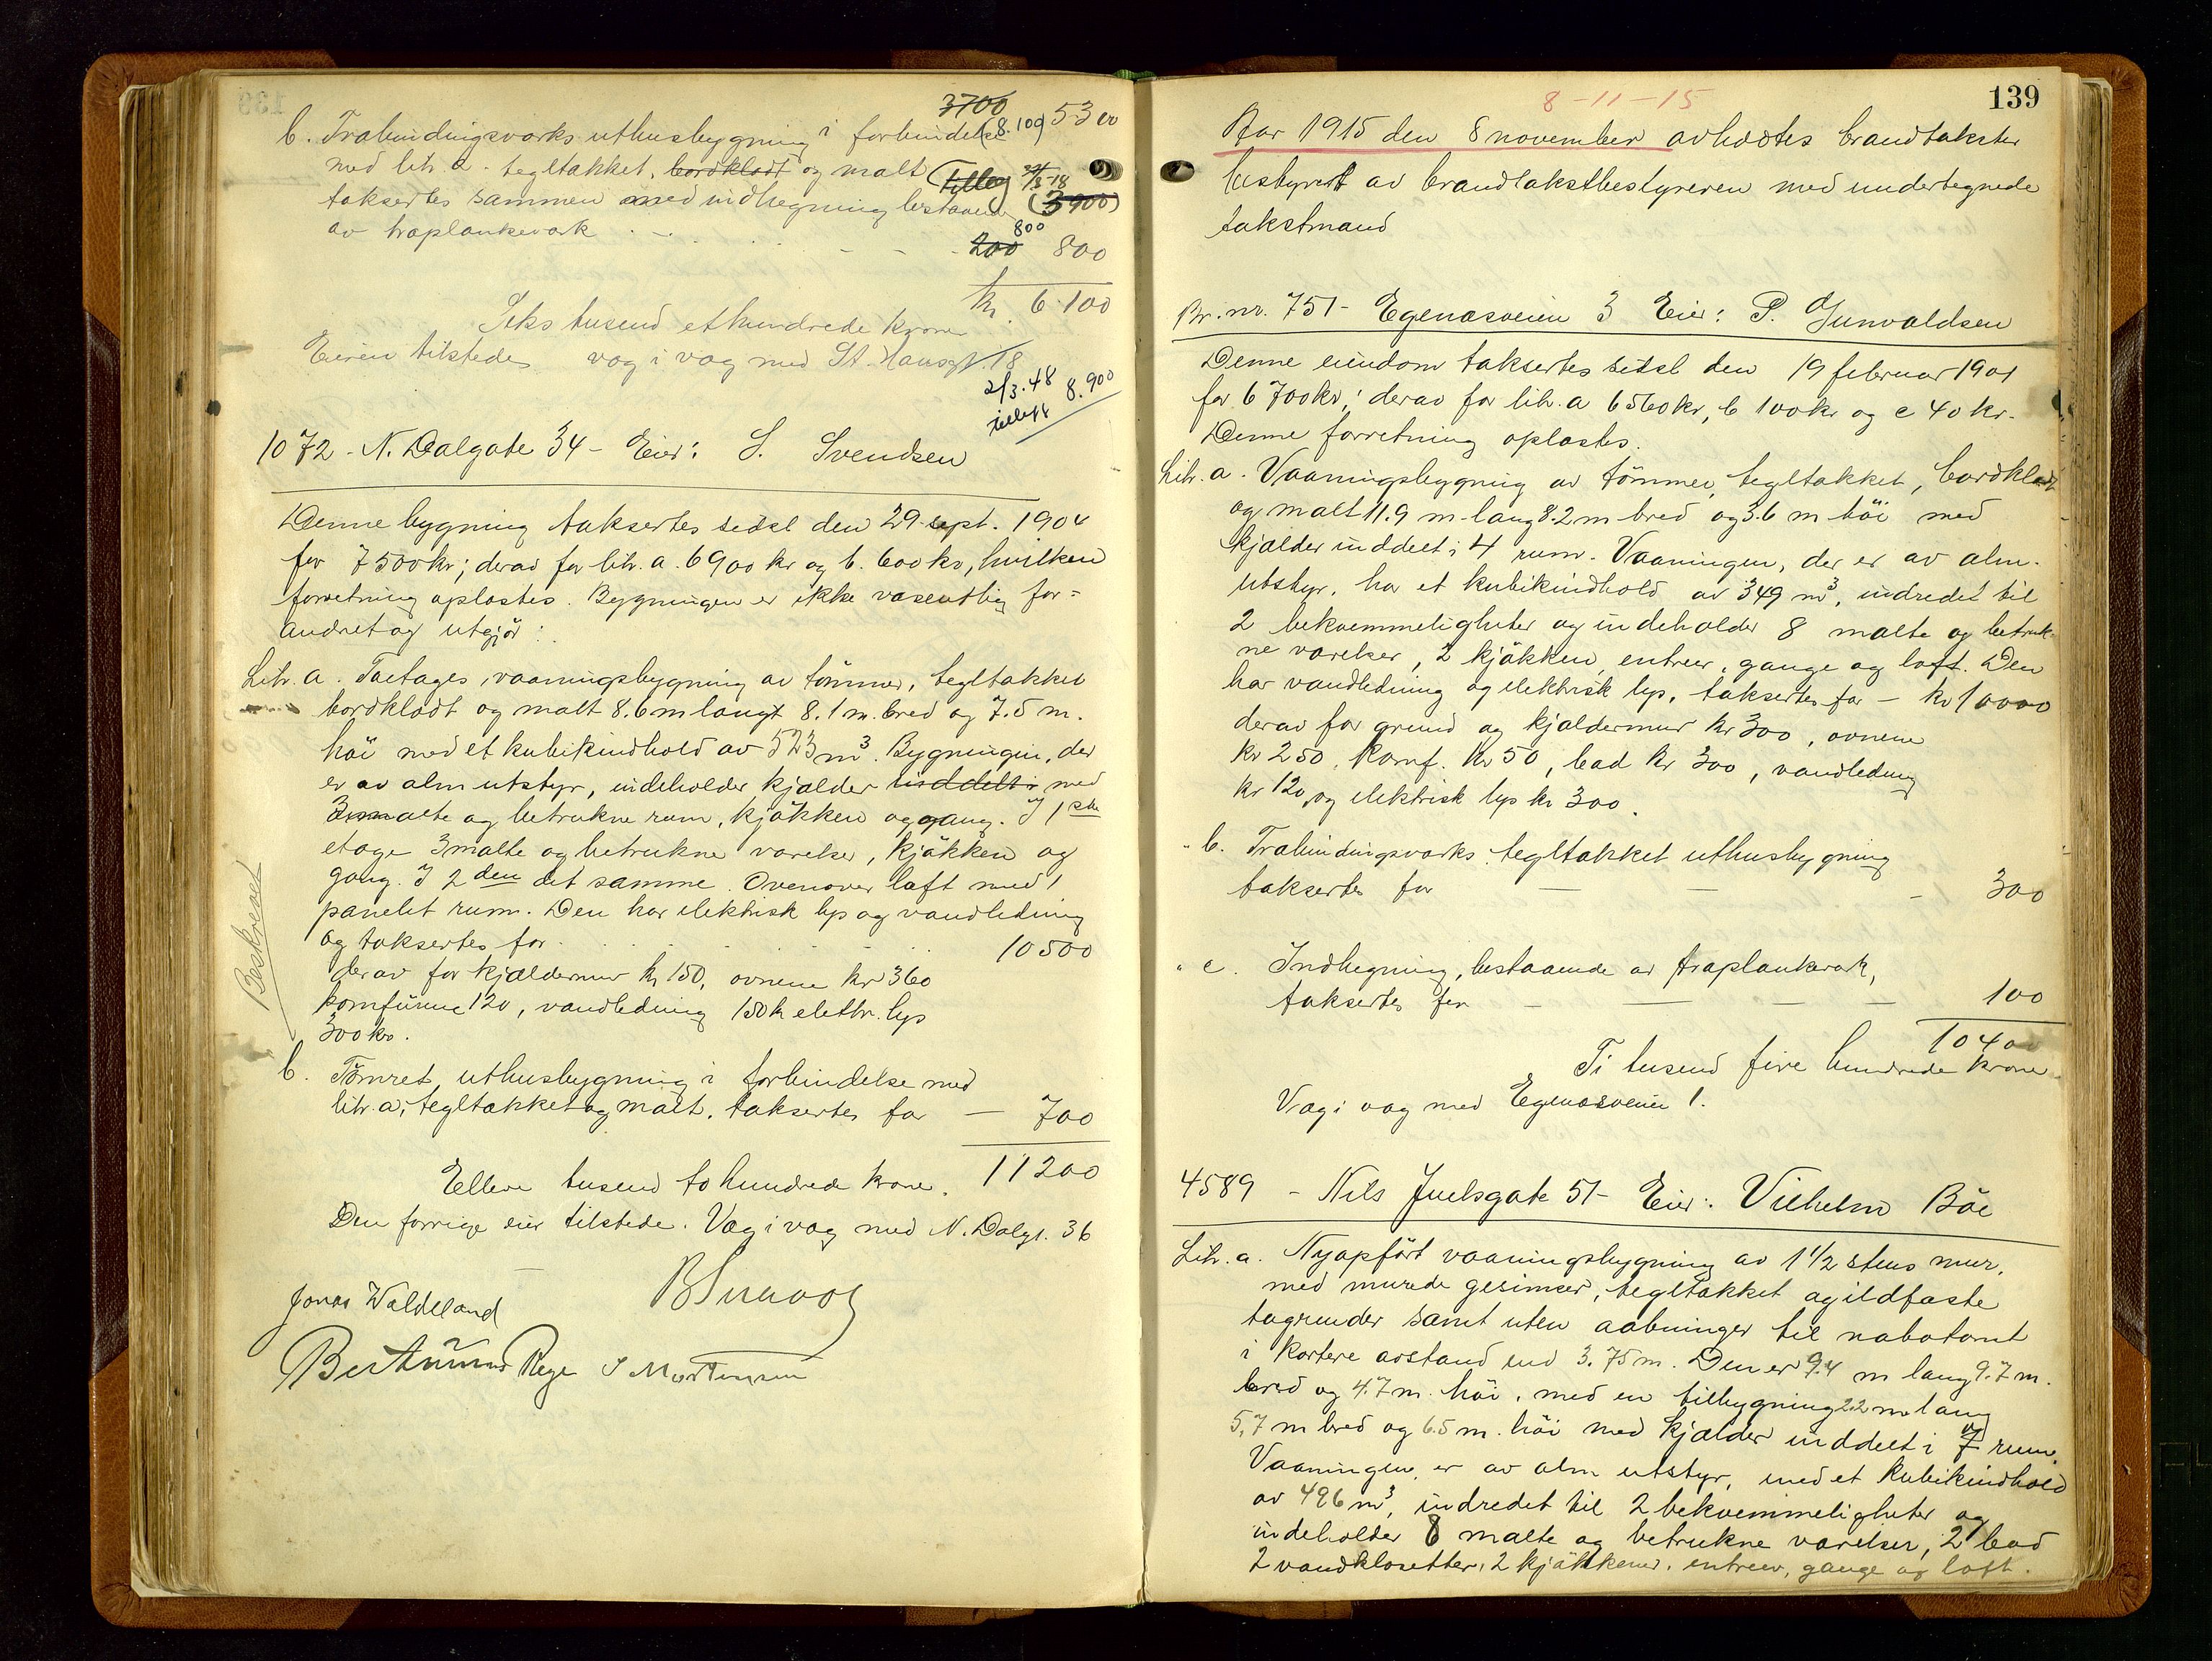 3700
b. Træbindingsværks uthusbygning i forbindelse (8.100) 5300
med litr. a. tegltækket, bordklædt og malt (Tillæg 22/3-18
taksertes sammen med indhegning bestaaende (3900)
av træplankeværk . - . . - - - 800
200 800
kr. 6.100
Seks tusend ethundrede kroner
Eieren tilstede væg i væg med St. Hansgt. 18
2/3.48 8.900
tillegg
1072 - N. Dalgate 34 - Eier: S. Svendsen
Denne bygning taksertes sidst den 29 sept. 1904
for 7500 kr; derav for litr. a. 6900 kr og b. 600 kr, hvilken
forretning oplæstes. Bygningen er ikke væsentlig for=
andret og utgjør:
Litr. a. Toetages vaaningsbygning av tømmer, tegltækket
bordklædt og malt 8.6 m langt 8.1 m. bred og 7.5 m.
høi med et kubikindhold av 523 m³. Bygningen, der
er av alm utstyr, indeholder kjælder inddelt i med
3 malte og betrukne rum, kjøkken og gang. I 1ste
etage 3 malte og betrukne værelser, kjøkken og
gang. I 2den det samme. Ovenover loft med 1
panelet rum. Den har elektrisk lys og vandledning
og taksertes for . . . . . . 10500
derav for kjældermur kr 150, ovnene kr 360
komfurene 120, vandledning 150 kr elektr. lys
300 kr.
Beskrevet
b. Tømret uthusbygning i forbindelse med
litr. a; tegltækket og malt, taksertes for — 700
Elleve tusend to hundrede krone. 11200
Den forrige eier tilstede. Væg i væg med N. Dalgt. 36
Jonas Waldeland
Bertinius Rege S Mortensen
139
8-11-15
Aar 1915 den 8 november avholdtes brandtakster
bestyret av brandtakstbestyreren med undertegnede
takstmænd
Br. nr. 751 - Egenæsveien 3 Eier: P. Gunvaldsen
Denne eiendom taksertes sidst den 19 februar 1901
for 6700 kr; derav for litr. a 6560 kr, b 100 kr og c 40 kr.
Denne forretning oplæstes.
Litr. a. Vaaningsbygning av tømmer, tegltækket, bordklædt
og malt 11.9 m lang 8.2 m bred og 3.6 m høi med
kjælder inddelt i 4 rum. Vaaningen, der er av alm.
utstyr, har et kubikindhold av 349 m³, indredet til
2 bekvemmeligheter og indeholder 8 malte og betruk-
ne værelser, 2 kjøkken, entreer, gange og loft. Den
har vandledning og elektrisk lys, taksertes for — kr 10000
derav for grund og kjældermur kr 300, ovnene
kr 250, komf. kr 50, bad kr 300, vandledning
kr 120, og elektrisk lys kr 300.
" b. Træbindingsværks tegltækket uthusbygning
taksertes for — — - 300
" c. Indhegning, bestaaende av træplankeværk,
taksertes for — — — — 100
10400
Ti tusend fire hundrede krone.
Væg i væg med Egenæsveien 1.
4589 - Nils Juelsgate 51 - Eier: Vilhelm Bøe
Litr. a. Nyopført vaaningsbygning av 1 1/2 stens mur,
med murede gesimser, tegltækket og ildfaste
tagrender samt uten aabninger til nabotomt
i kortere avstand end 3.75 m. Den er 9.4 m lang 9.7 m.
bred og 4.7 m. høi, med en tilbygning 2.2 m lang
5,7 m bred og 6.5 m. høi med kjælder inddelt i 7 rum.
Vaaningen er av alm utstyr, med et kubikindhold
av 496 m³, indredet til 2 bekvemmeligheter og
indeholder 8 malte og betrukne værelser, 2 bad
2 vandklosetter, 2 kjøkkener, entreer, gange og loft.